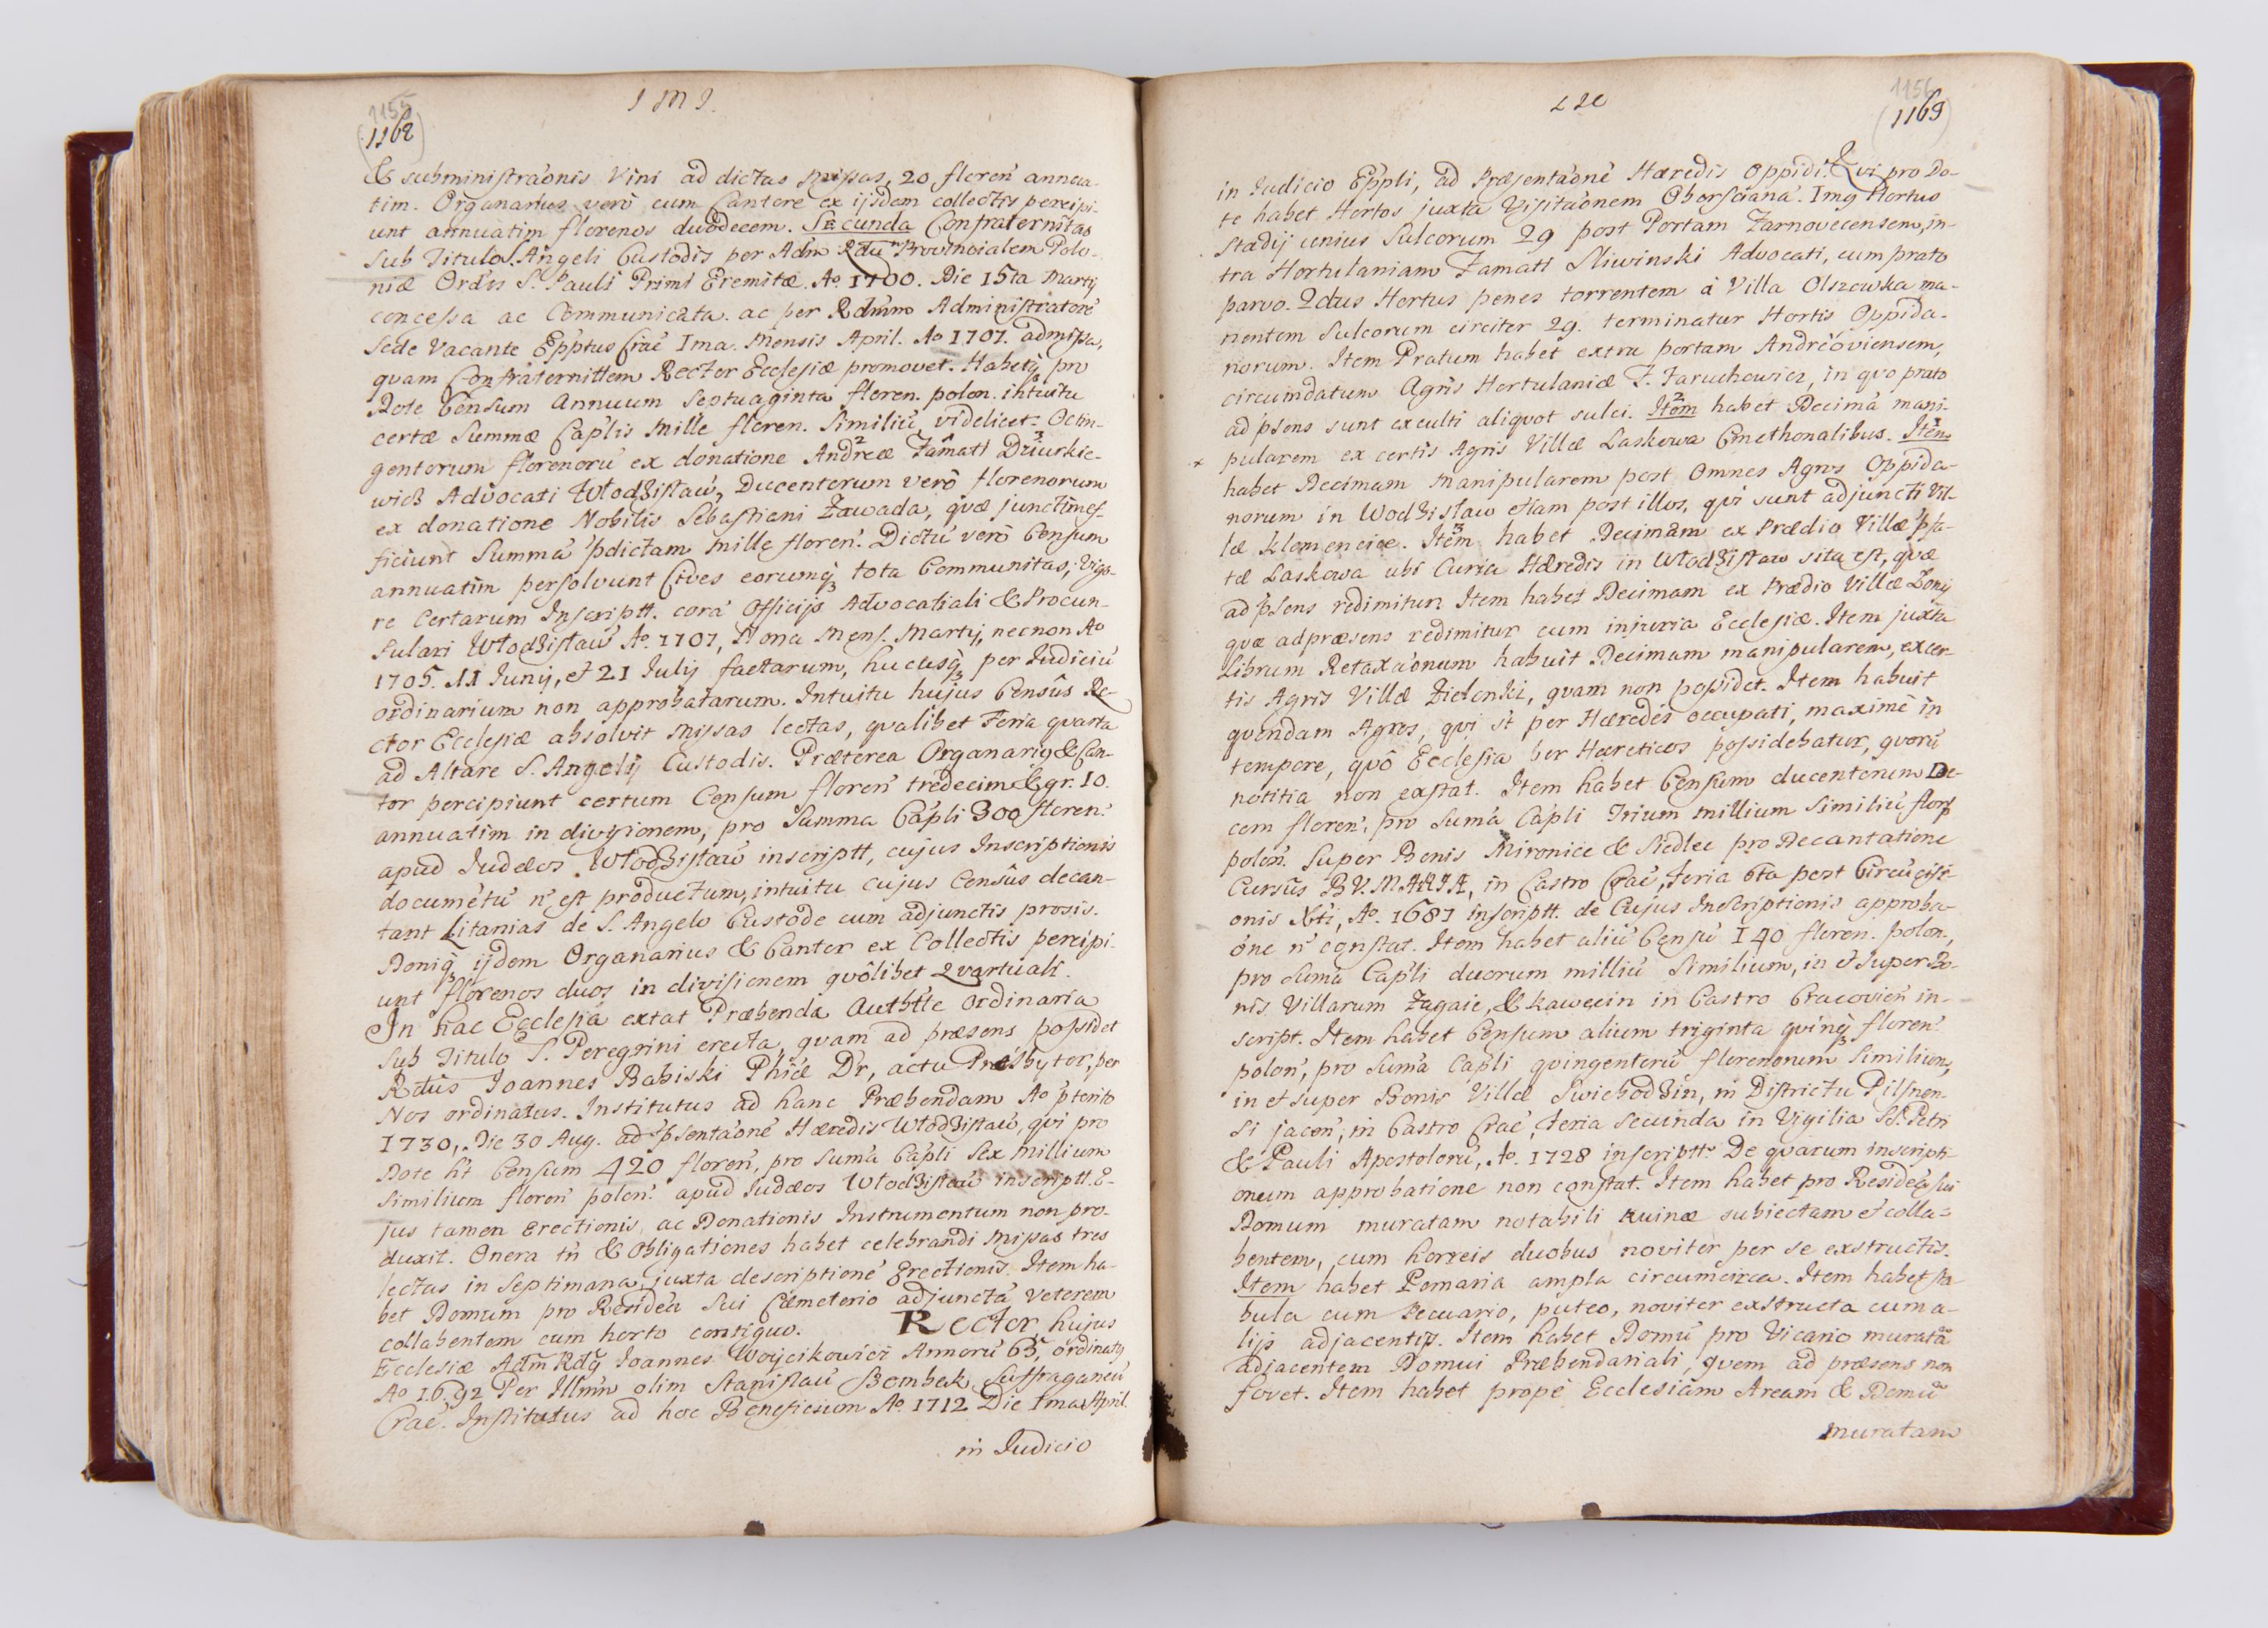 1155
(1162)
I M I.
& subministraónis Vini ad dictas Missas, 20 floren̄ annua-
tim. Organarius verò cum Cantore ex ijsdem collectis percipi-
unt annuatim florenos duodecem. Secunda Confraternitas
sub Titulo S. Angeli Custodis per Adm Rdum Provincialem Polo-
niæ Ordis S. Pauli Primi Eremitæ. Aº 1700. Die 15ta Martij
concessa ac Communicata. ac per Rdmm Administratorē
Sede Vacante Epptus Crać Ima. Mensis April. Aº 1701. admissa,
quam Confraternittem Rector Ecclesiæ promovet. Habetq3 pro
Dote Censum Annuum Septuaginta floren. polon. intuitu
certæ Summæ Caplis Mille floren. Similiū, videlicet: Octin-
gentorum florenorū ex donatione Andreæ Famati Dziurkie-
wicz Advocati Włodzisław, Ducentorum verò florenorum
ex donatione Nobilis Sebastiani Zawada, quæ junctim ef-
ficiunt Summā p̄dictam Mille floren̄. Dictū verò Censum
annuatim persolvunt Cives eorumq3 tota Communitas, Vigo-
re Certarum Inscriptt. corā Officijs Advocatiali & Procun-
sulari Włodzisław Aº 1701, Nona Mens. Martij, necnon Aº
1705. 11 Junij, et 21 Julij factarum, hucusq3 per Judiciū
Ordinarium non approbatarum. Intuitu hujus Censûs Re-
ctor Ecclesiæ absolvit Missas lectas, qualibet Feria quarta
ad Altare S. Angeli Custodis. Præterea Organarig & Can-
tor percipiunt certum Censum floren̄ tredecim & gr. 10.
annuatim in divisionem, pro Summa Capli 300 floren̄
apud Judæos Włodzisław inscriptt, cujus Inscriptionis
documētū n̄ est productum, intuitu cujus Censûs decan-
tant Litanias de S. Angelo Custode cum adjunctis prosis.
Deniq3 ijdem Organarius & Cantor ex Collectis percipi-
unt florenos duos in divisionem quôlibet Quartuali.
In hac Ecclesia extat Præbenda Authtte Ordinaria
sub Titulo S. Peregrini erecta, quam ad præsens possidet
Rdus Joannes Babiski Phiæ Dr, actu Præsbyter, per
Nos ordinatus. Institutus ad hanc Præbendam Aº p̄terito
1730, Die 30 Aug. ad p̄sentaonē Hæredis Włodzisław, qui pro
Dote ht̄ Censum 420 floren̄, pro Sumā Capli Sex Millium
Similium floren̄ polon̄. apud Judæos Włodzisław inscriptt. E-
jus tamen Erectionis, ac Donationis Instrumentum non pro-
duxit. Onera tn̄ & Obligationes habet celebrandi Missas tres
lectas in Septimana, juxta descriptionē Erectionis. Item ha-
bet Domum pro Residēa sui Cæmeterio adjunctā Veterem
collabentem cum horto contiguo. Rector hujus
Ecclesiæ Adm Rdg Joannes Woycikowicz Annorū 63, ordinatg
Aº 1692 Per Illmn olim Stanislaū Bembek Suffraganeū
Crać. Institutus ad hoc Beneficium Aº 1712 Die Ima April.
in Judicio
1156
(1163)
in Judicio Eppli, ad Præsentaonē Hæredis Oppidi. Qui pro Do-
te habet Hortos juxta Visitaonem Oborscianā. Img Hortus
stadij unius Sulcorum 29 post Portam Zarnovecensem, in-
tra Hortulaniam Famati Sliwinski Advocati, cum prato
parvo. 2dus Hortus penes torrentem à Villa Olszowka ma-
nentem Sulcorum circiter 29. terminatur Hortis Oppida-
norum. Item Pratum habet extra portam Andreoviensem,
circumdatum Agris Hortulaniæ F. Jaruchowicz, in quo prato
ad p̄sens sunt exculti aliquot sulci. Item habet Decimā mani-
pularem ex certis Agris Villæ Laskowa Cmethonalibus. Item
habet Decimam manipularem post Omnes Agros Oppida-
norum in Wodzislaw etiam post illos, qui sunt adjuncti Vil-
læ Klemencice. Item habet Decimam ex Prædio Villæ p̄fa-
tæ Laskowa ubi Curia Hæredis in Włodzisław sita est, quæ
ad p̄sens redimitur. Item habet Decimam ex Prædio Villæ Zony
quæ ad præsens redimitur cum injuria Ecclesiæ. Item juxta
Librum Retaxaonum habuit Decimam manipularem, ex cer-
tis Agris Villæ Zielonki, quam non possidet. Item habuit
quendam Agros, qui st̄ per Hæredes occupati, maximè in
tempore, quô Ecclesia per Hæreticos possidebatur, quorū
notitia non exstat. Item habet Censum ducentorum De-
cem floren̄. pro Sumā Capli Trium millium Similiū flor.
polon̄. Super Bonis Mironice & Siedlec pro Decantatione
Cursûs B.V. MARIÆ, in Castro Crać, Feria 6ta post Circūcisi-
onis Xti, Aº. 1687 inscriptt. de Cujus Inscriptionis approba-
óne n̄ constat. Item habet aliū Censū 140 floren. polon.,
pro Sumā Capli duorum milliū Similium, in et super Bo-
nis Villarum Zagaie, & Kawęcin in Castro Cracovien̄ in-
script. Item habet Censum alium triginta quinq3 floren̄.
polon̄, pro Sumā Capli quingentorū florenorum Similium,
in et super Bonis Villæ Swiebodzin, in Districtu Pilsnen-
si jacen̄, in Castro Crać, Feria Secunda in Vigilia SS. Petri
& Pauli Apostolorū, Aº. 1728 inscriptt. De quarum inscripti-
onum approbatione non constat. Item habet pro Residēa sui
Domum muratam notabili ruinæ subiectam et colla-
bentem, cum horreis duobus noviter per se exstructis.
Item habet Pomaria ampla circumcirca. Item habet sta-
bula cum Pecuario, puteo, noviter exstructa cum a-
lijs adjacentijs. Item habet Domū pro Vicario muratā
adjacentem Domui Præbendariali, quem ad præsens non
fovet. Item habet propè Ecclesiam Aream & Domū
muratam